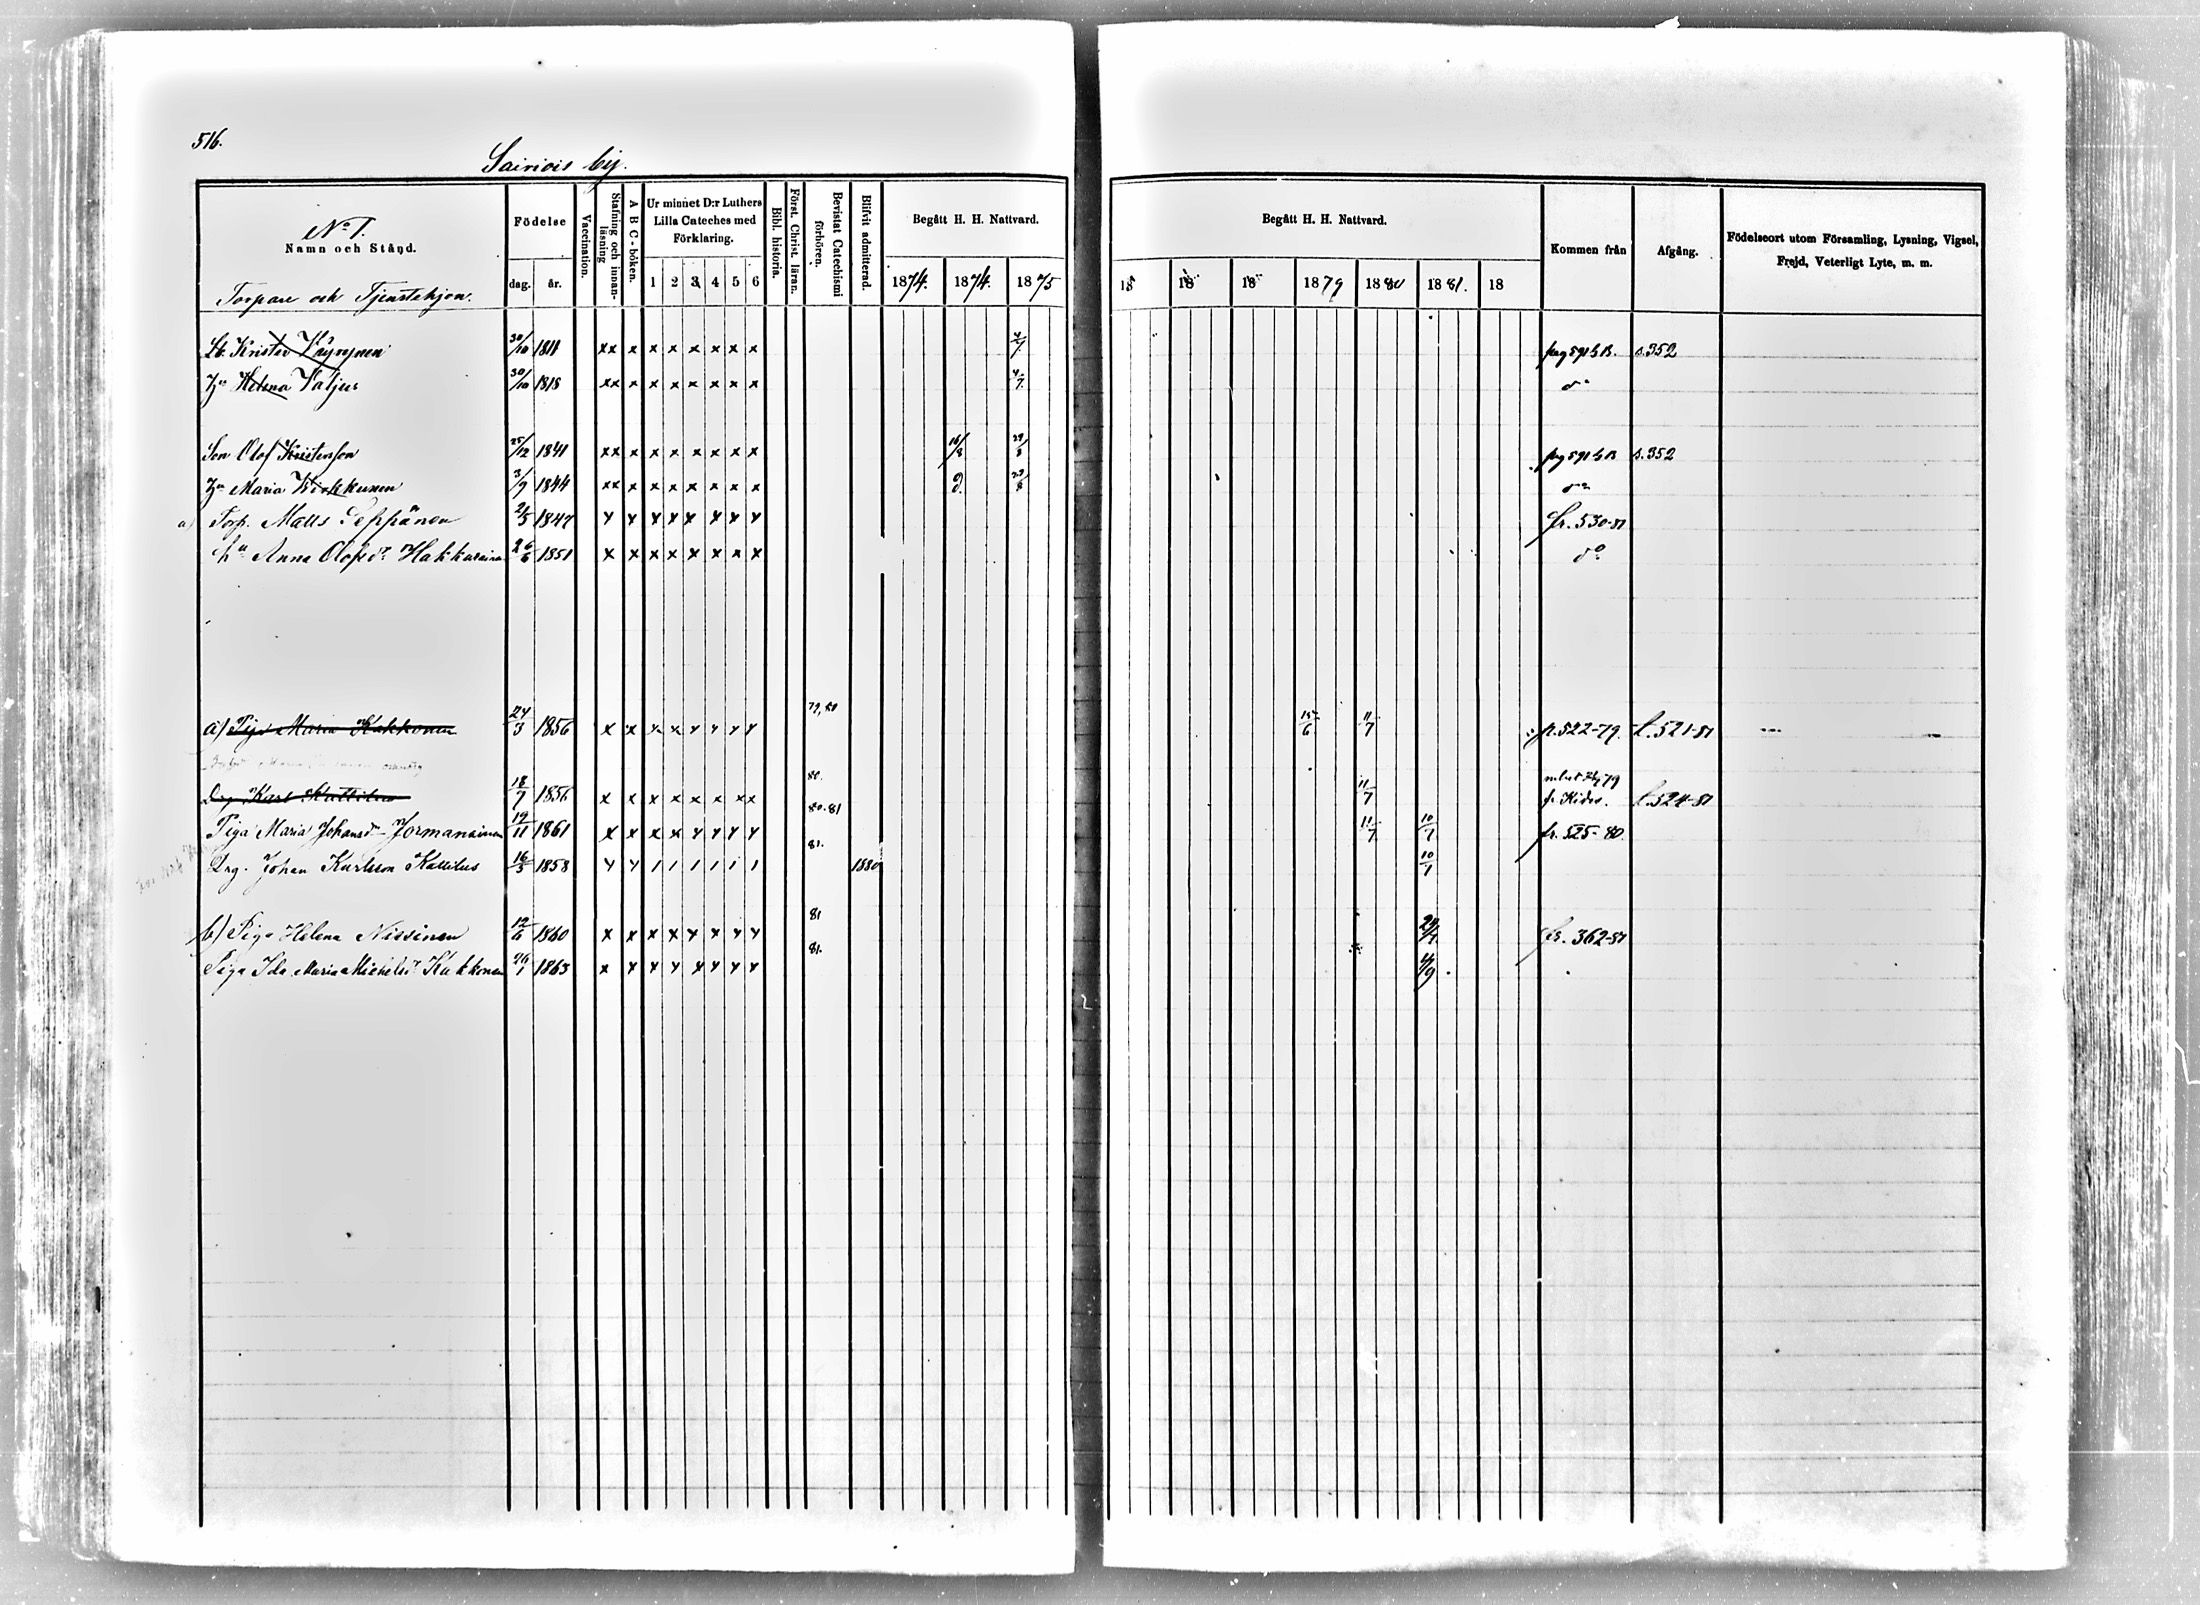 516.
Sairiois by.
No 1.
Namn och Stånd.
Torpare och Tjenstehjon.
Födelse
dag. år.
Vaccination.
Stafning och innanläsning
A B C-boken.
Ur minnet D:r Luthers Lilla Cateches med Förklaring.
1 2 3 4 5 6
Bibl. historia.
Först. Christ. läran.
Bevistat Catechismi förhören.
Blifvit admitterad.
Begått H. H. Nattvard.
1874. 1874. 1875
Begått H. H. Nattvard.
18 18 18 1879 1880 1881. 18
Kommen från
Afgång.
Födelseort utom Församling, Lysning, Vigsel, Frejd, Veterligt Lyte, m. m.
30/10 1811 xx x x x x x x x 4/7 s. 352
Hu Helena Valjus 30/10 1818 xx x x x x x x x 4/7. do
Son Olof Kristerson 25/12 1841 xx x x x x x x x 16/8 29/8 s. 352
Hu Maria 3/9 1844 xx x x x x x x x d. 29/8 do
a) Torp. Matts Seppänen 2/5 1847 x x x x x x x x fr. 530-81
hu Anna Olofsdr Hakkarainen 26/6 1851 x x x x x x x x do
a) Piga Maria Kakkonen 24/3 1856 x x x x x x x x 79, 80 15/6 11/7 fr. 522-79. t. 521-81
Drg Karl Kattilus 18/7 1856 x x x x x x x x 80. 11/7 fr. Kides. t. 524-81
Piga Maria Johansdr Jormanainen 19/11 1861 x x x x x x x x 80. 81 11/7 10/7 fr. 525-80.
Drg. Johan Karlsson Kattilus 16/5 1858 x x 1 1 1 1 1 1 81. 1880 10/7
b) Piga Helena Nissinen 12/6 1860 x x x x x x x x 81 24/7. fr. 362-81
Piga Ida Maria Michelsdr Kakkonen 26/1 1863 x x x x x x x x 81. 4/9